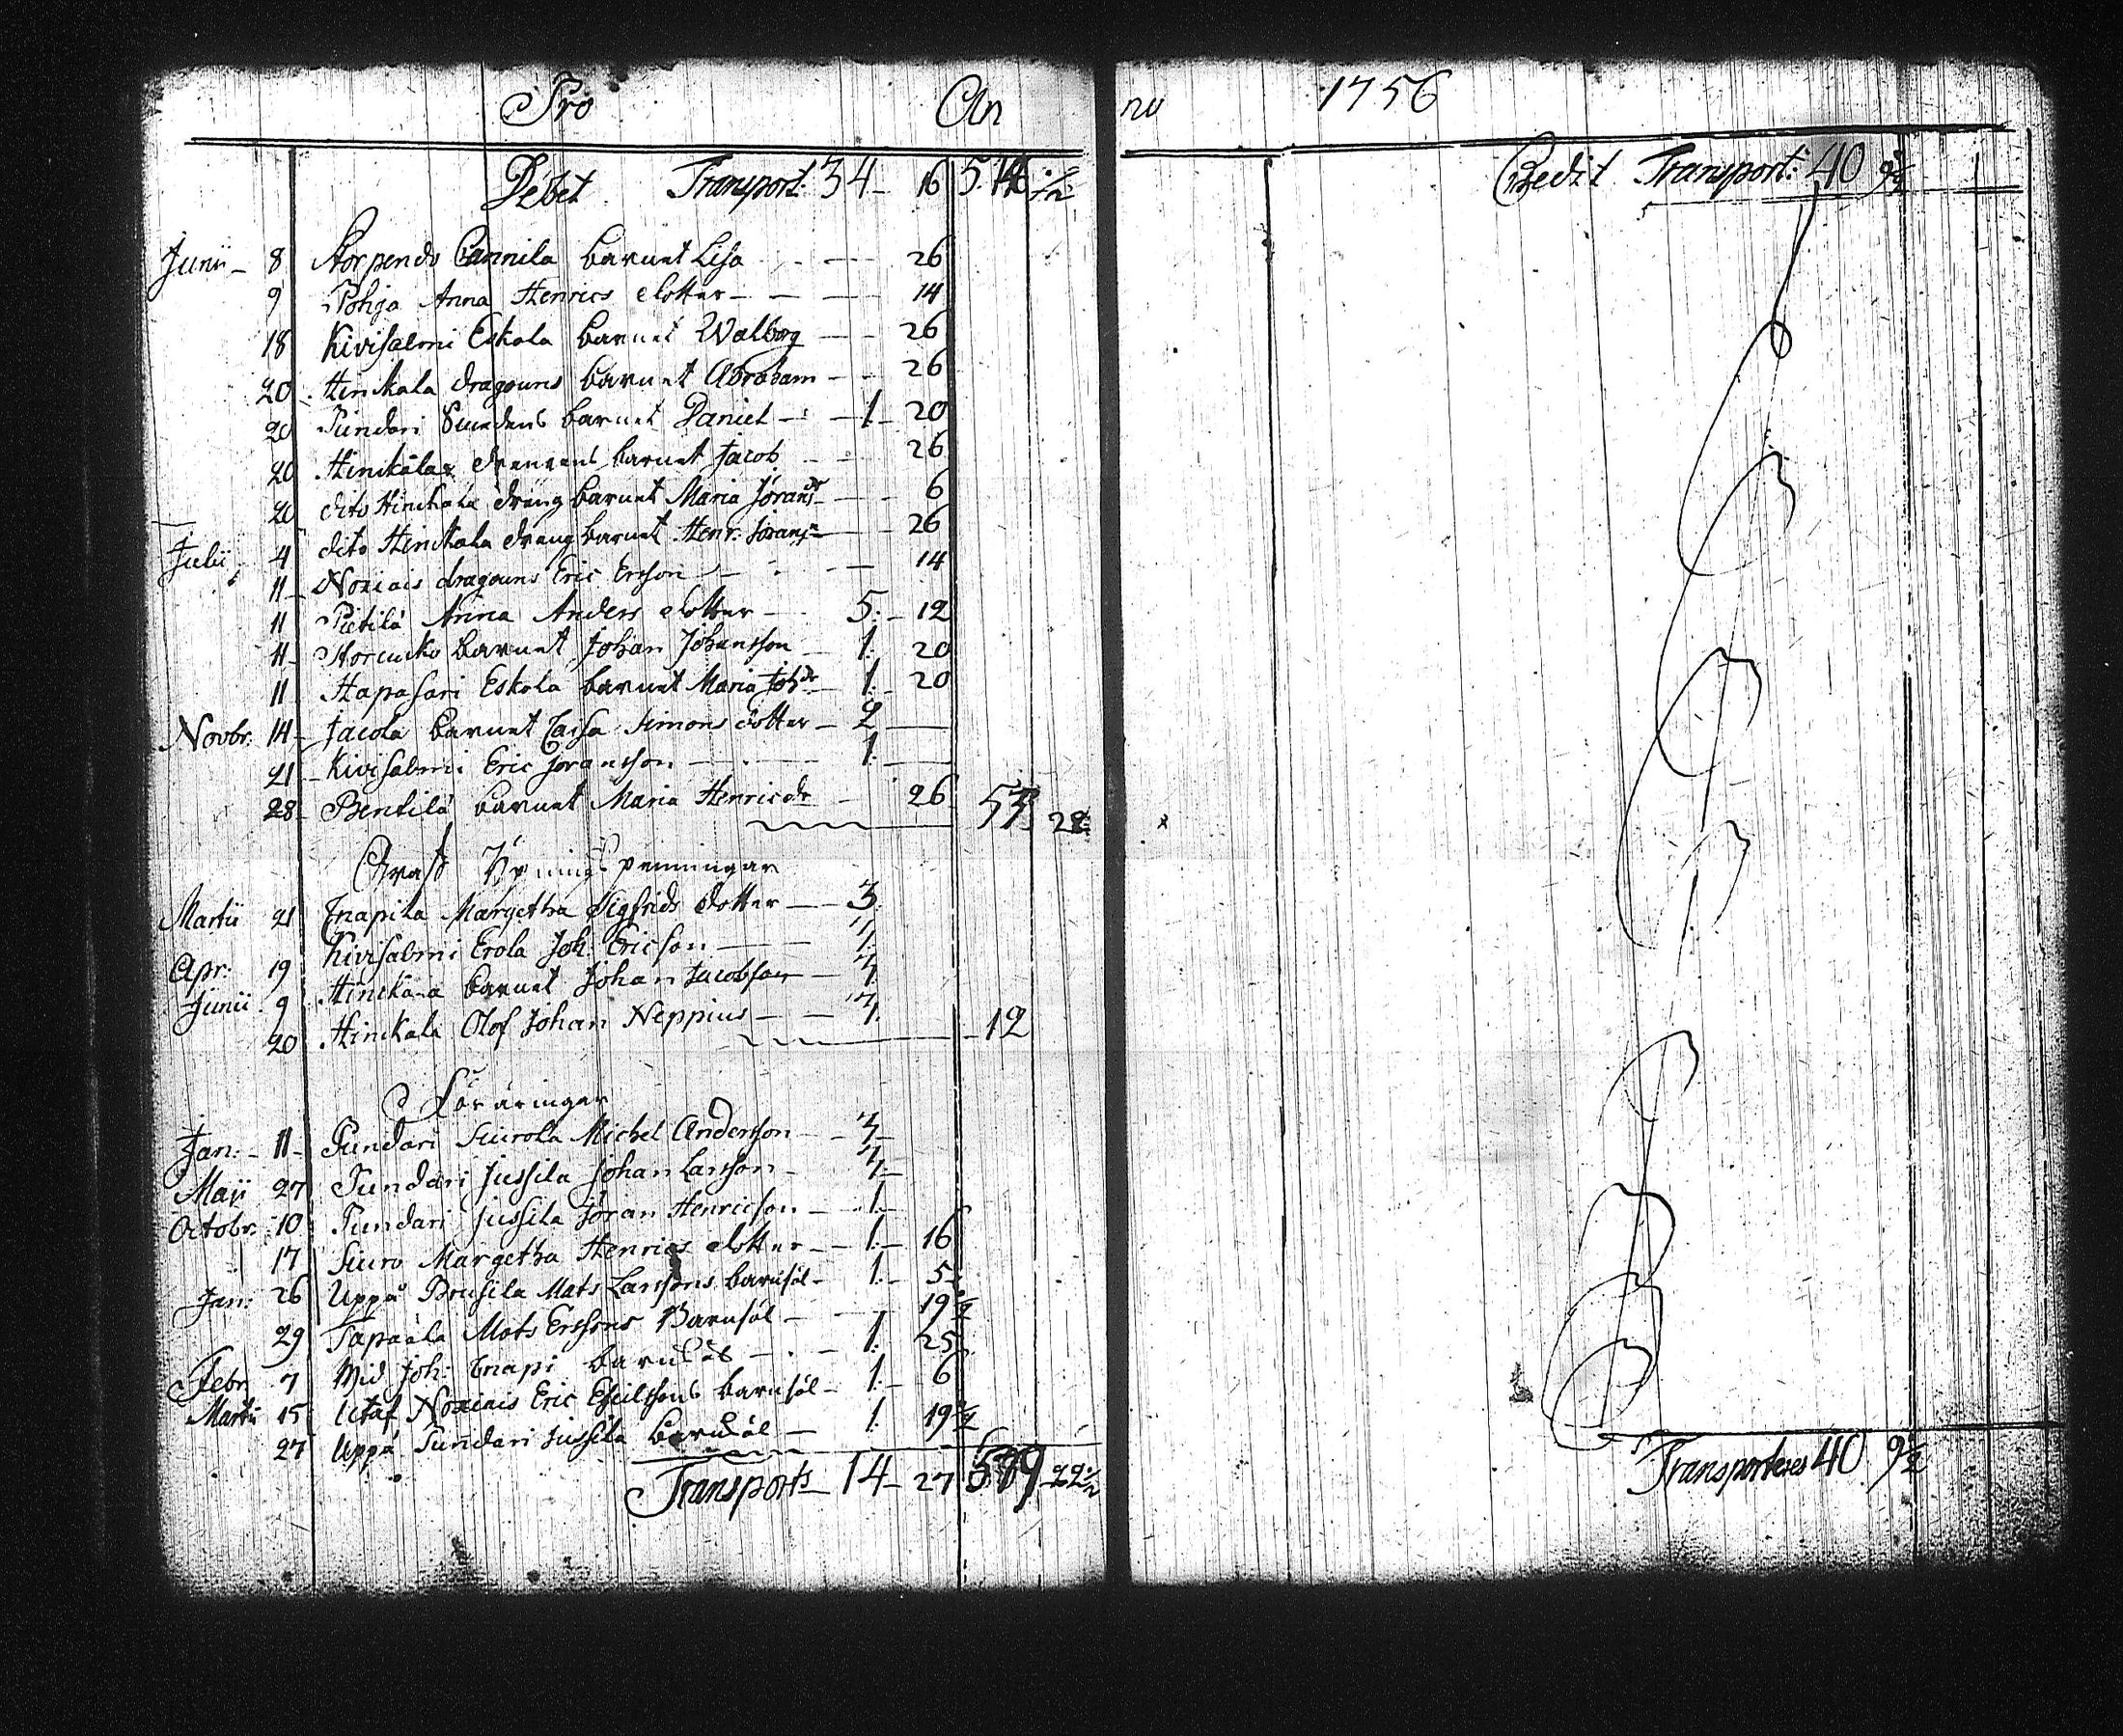 Pro An
Debet Transport: 34 - 16
Junii - 8 Storpendo Cannila barnet Lisa - - 26
9 Pohja Anna Henrics dotter - - 14
18 Kivisalmi Eskola barnet Walborg - - 26
20 - Hinckala dragouns barnet Abraham - - 26
20 Sundari barnet Daniel - - 1 - 20
20 Hinckala barnet Jacob - 26
20 dito Hinckala dräng barnet Maria Jörans - 6
Julii 4 dito Hinckala dräng barnet Henr: Jörans - 26
11 - Noxiais dragouns Eric Ersson - - 14
11 Pietilä Anna Anders dotter - 5: - 12
11 - barnet Johan Johansson - 1: 20
11 Hapasari Eskola barnet Maria Joh dr - 1: - 20
Novbr: 14 - Jacola barnet Caisa Simons dotter - 2 -
21 - Kivisalmi Eric Joransson - - 1: -
28 - Bentilä barnet Maria Henricdr - 26
Graf penningar
Martii 21 Knapila Margetha Sigfrids dotter - 3.
Apr: 19 Kivisalmi Erola Joh: Ericson - 3
Junii 9 barnet Johan Jacobson - 3
20 Hinckala Olof Johan Neppius - - 3. - 12
Föräringar
Jan: - 11 - Sundari Suurola Michel Andersson - 3 -
Maji 27 Sundari Jussila Johan Larsson - 3 -
Octobr: 10 Sundari Jussila Jöran Henricson - 1 -
17 Suuro Margetha Henrics dotter - 1: - 16
Jan: 26 Uppå Brusila Mats Larssons barnsöl - 1: - 5
29 Tapaala Mats Erssons Barnsöl - 19 1/2
Febr 7 Wid Joh: Knapi barnsöl - - 1: 25
Martii 15 Utaf Noxiais Eric barnsöl - 1: - 6
27 Uppå Sundari Jussila barnsöl - 1: 19 1/2
Transports - 14 - 27 22 1/2
no 1756
Credit Transport: 40 9 1/2
Transporteres 40 9 1/2